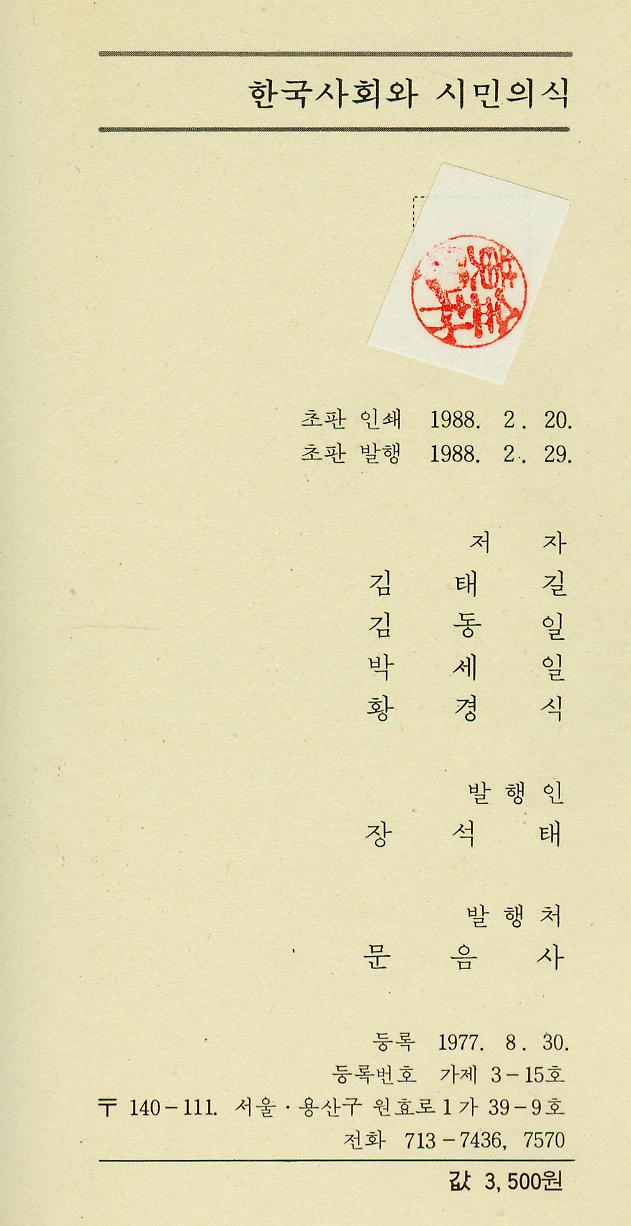 한국사회와 시민의식
초판 인쇄 1988. 2. 20.
초판 발행 1988. 2. 29.
저 자
김 태 길
김 동 일
박 세 일
황 경 식
발 행 인
장 석 태
발 행 처
문 음 사
등록 1977. 8. 30.
등록번호 가제 3-15호
〒 140-111. 서울·용산구 원효로 1가 39-9호
전화 713-7436, 7570
값 3,500원